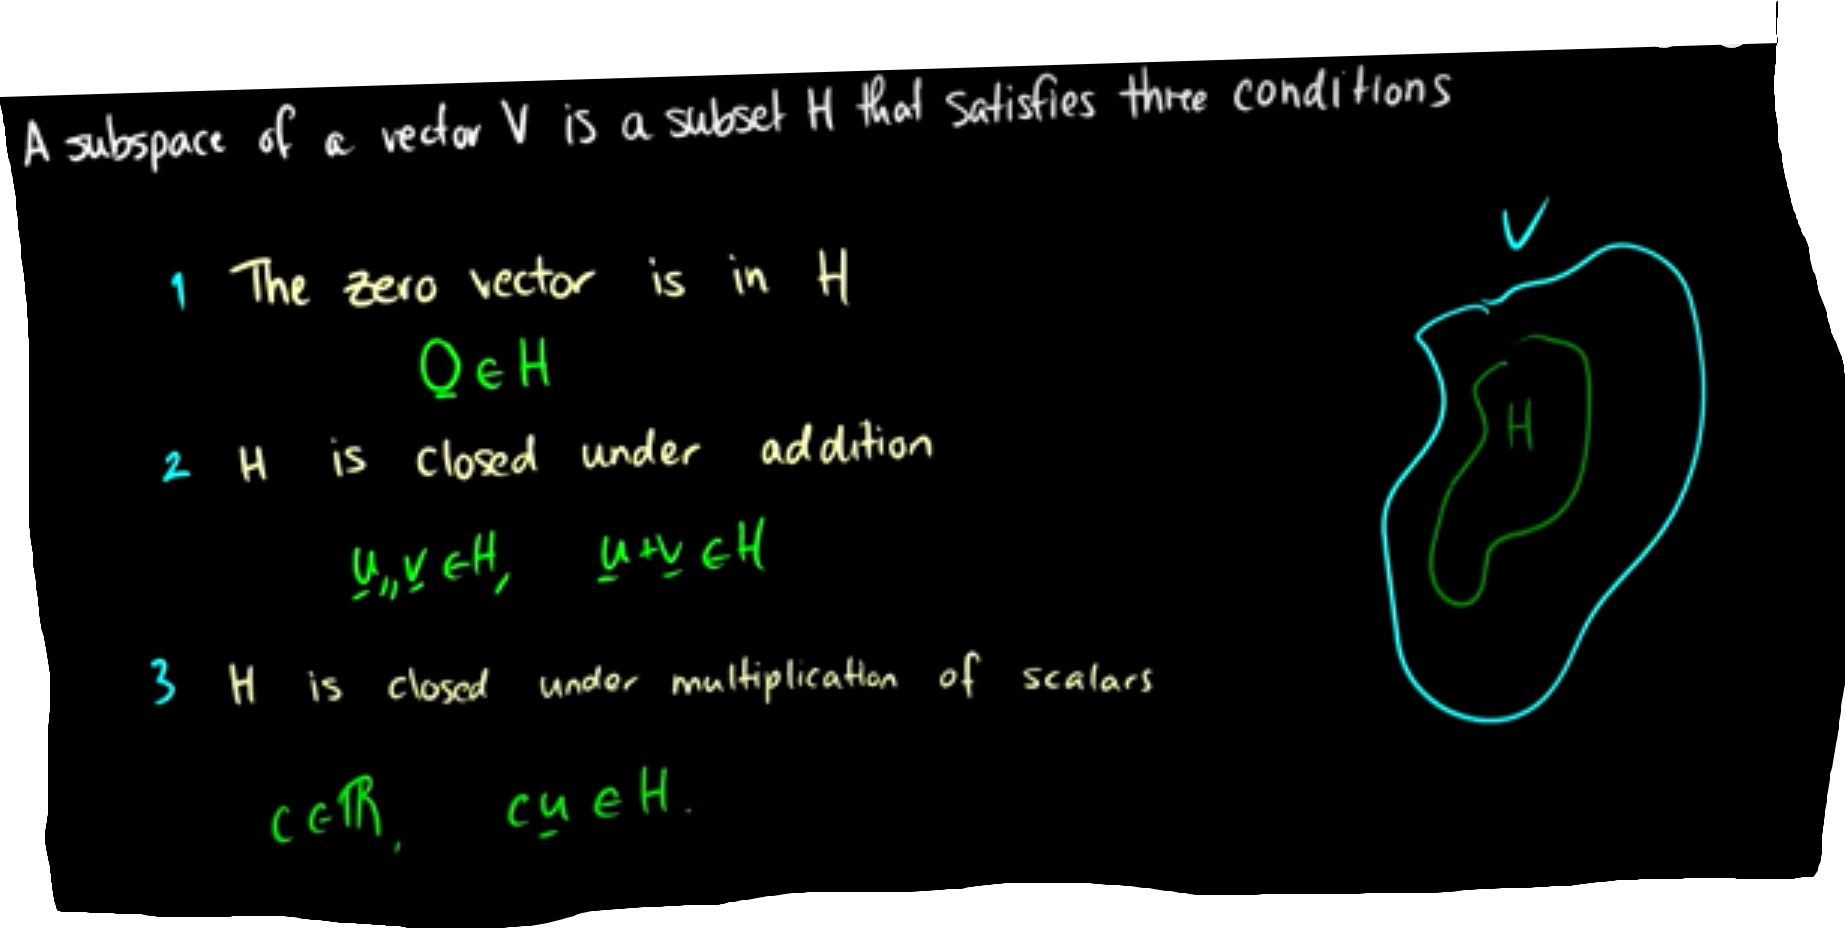 A subspace of a vector V is a subset H that satisfies three conditions
1 The zero vector is in H
0 ∈ H
2 H is closed under addition
u,, v ∈ H, u + v ∈ H
3 H is closed under multiplication of scalars
c ∈ ℝ, cu ∈ H.
V
H